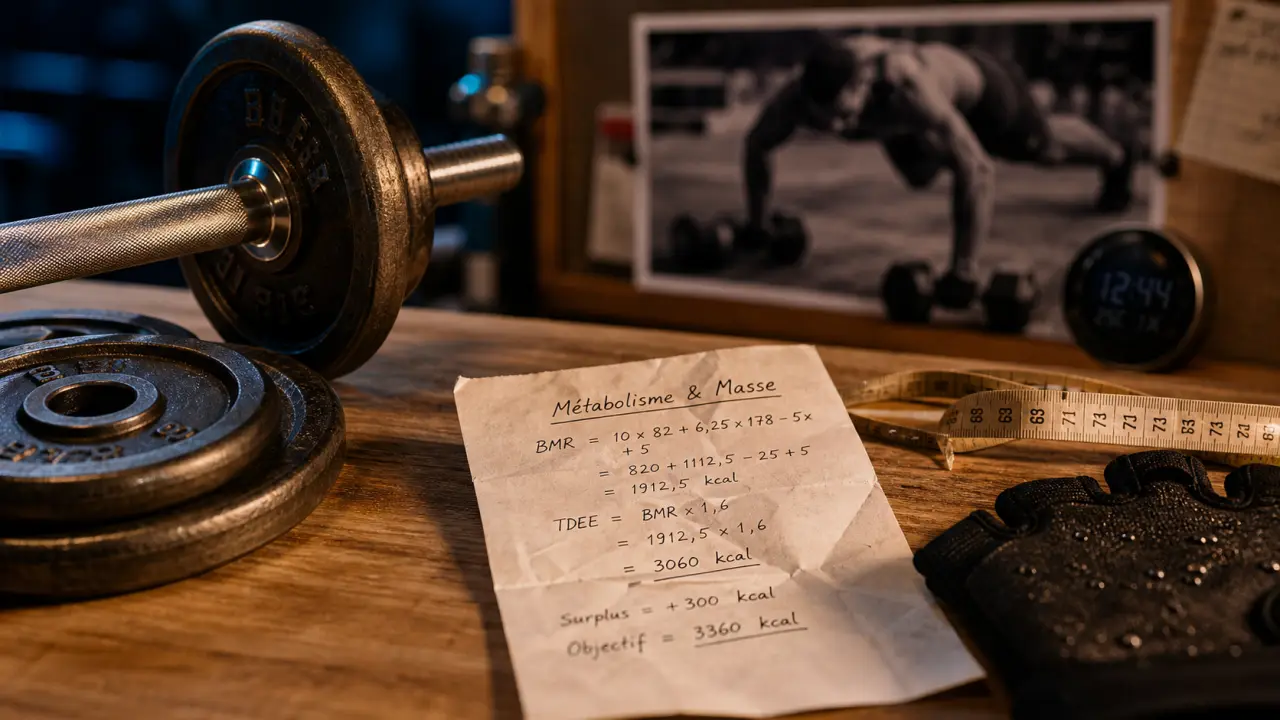 Métabolisme & Masse
BMR = 10 x 82 + 6,25 x 178 - 5x
+ 5
= 820 + 1112,5 - 25 + 5
= 1912,5 kcal
TDEE = BMR x 1,6
= 1912,5 x 1,6
= 3060 kcal
Surplus = + 300 kcal
Objectif = 3360 kcal
12:44
71
73